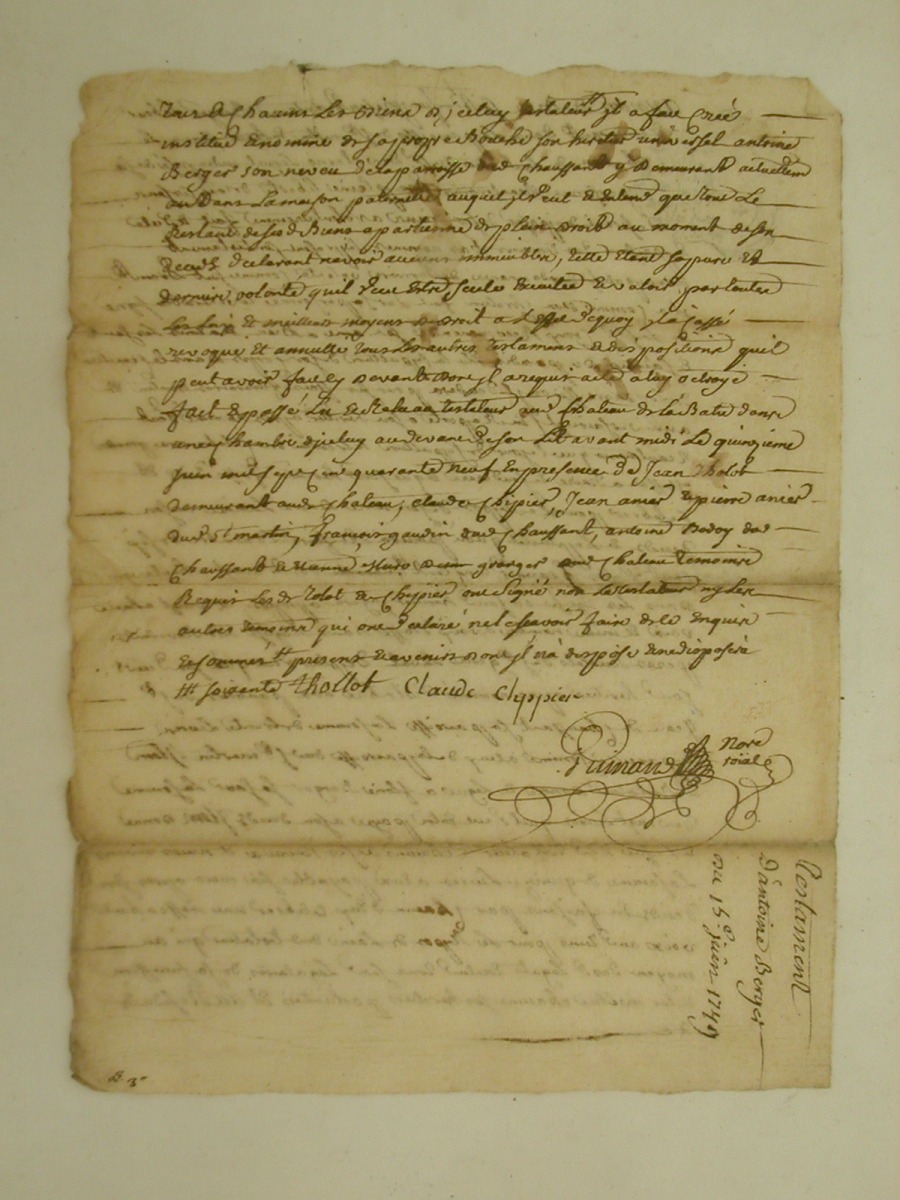 tous & chacuns Les biens d'jceluy testateur jl a fait Créé
institué & nommé de sa propre Bouche son heritier universel antoine
Berger son neveu de la parroisse dud Chaussant y Demeurant actuellem
dans La maison paternelle auquel jl veut & Entend que tout Le
Restant de sesd Biens apartienne de plein droit au moment de son
deceds declarant navoir aucuns immeubles, cette Etant sa pure et
derniere volonté quil veut Estre seule Executée & valoir par toutes
Les Loix et meilleurs moyens de droit a Leffet dequoy jl a Cassé
revoqué et annullé tous Les autres testamens & dispositions quil
peut avoir fait cy devant Dont jl a requis acte a luy octroyé
fait & passé Lu & Relu au testateur aud Chateau de la Batie dans
une Chambre djceluy au devant de son Lit avant midi Le quinzieme
juin mil sept Cent quarante neuf En presence de Jean tholot
demeurant aud Chateau, Claude Chipier, Jean anier & pierre anier
dud St martin, francois gaudin dud Chaussant, antoine Bodoy dud
Chaussant & Etienne granger dud Chateau temoins
Requis Les dt tolot & Chipier ont signé non Le testateur ny Les
autres temoins qui ont declaré ne le scavoir faire de ce Enquis
& sommés present & avenir dont jl n'a disposé
thollot Claude Chyppier
Nore
roial
Testament
D'antoine Berger
du 15e juin 1749
B 3